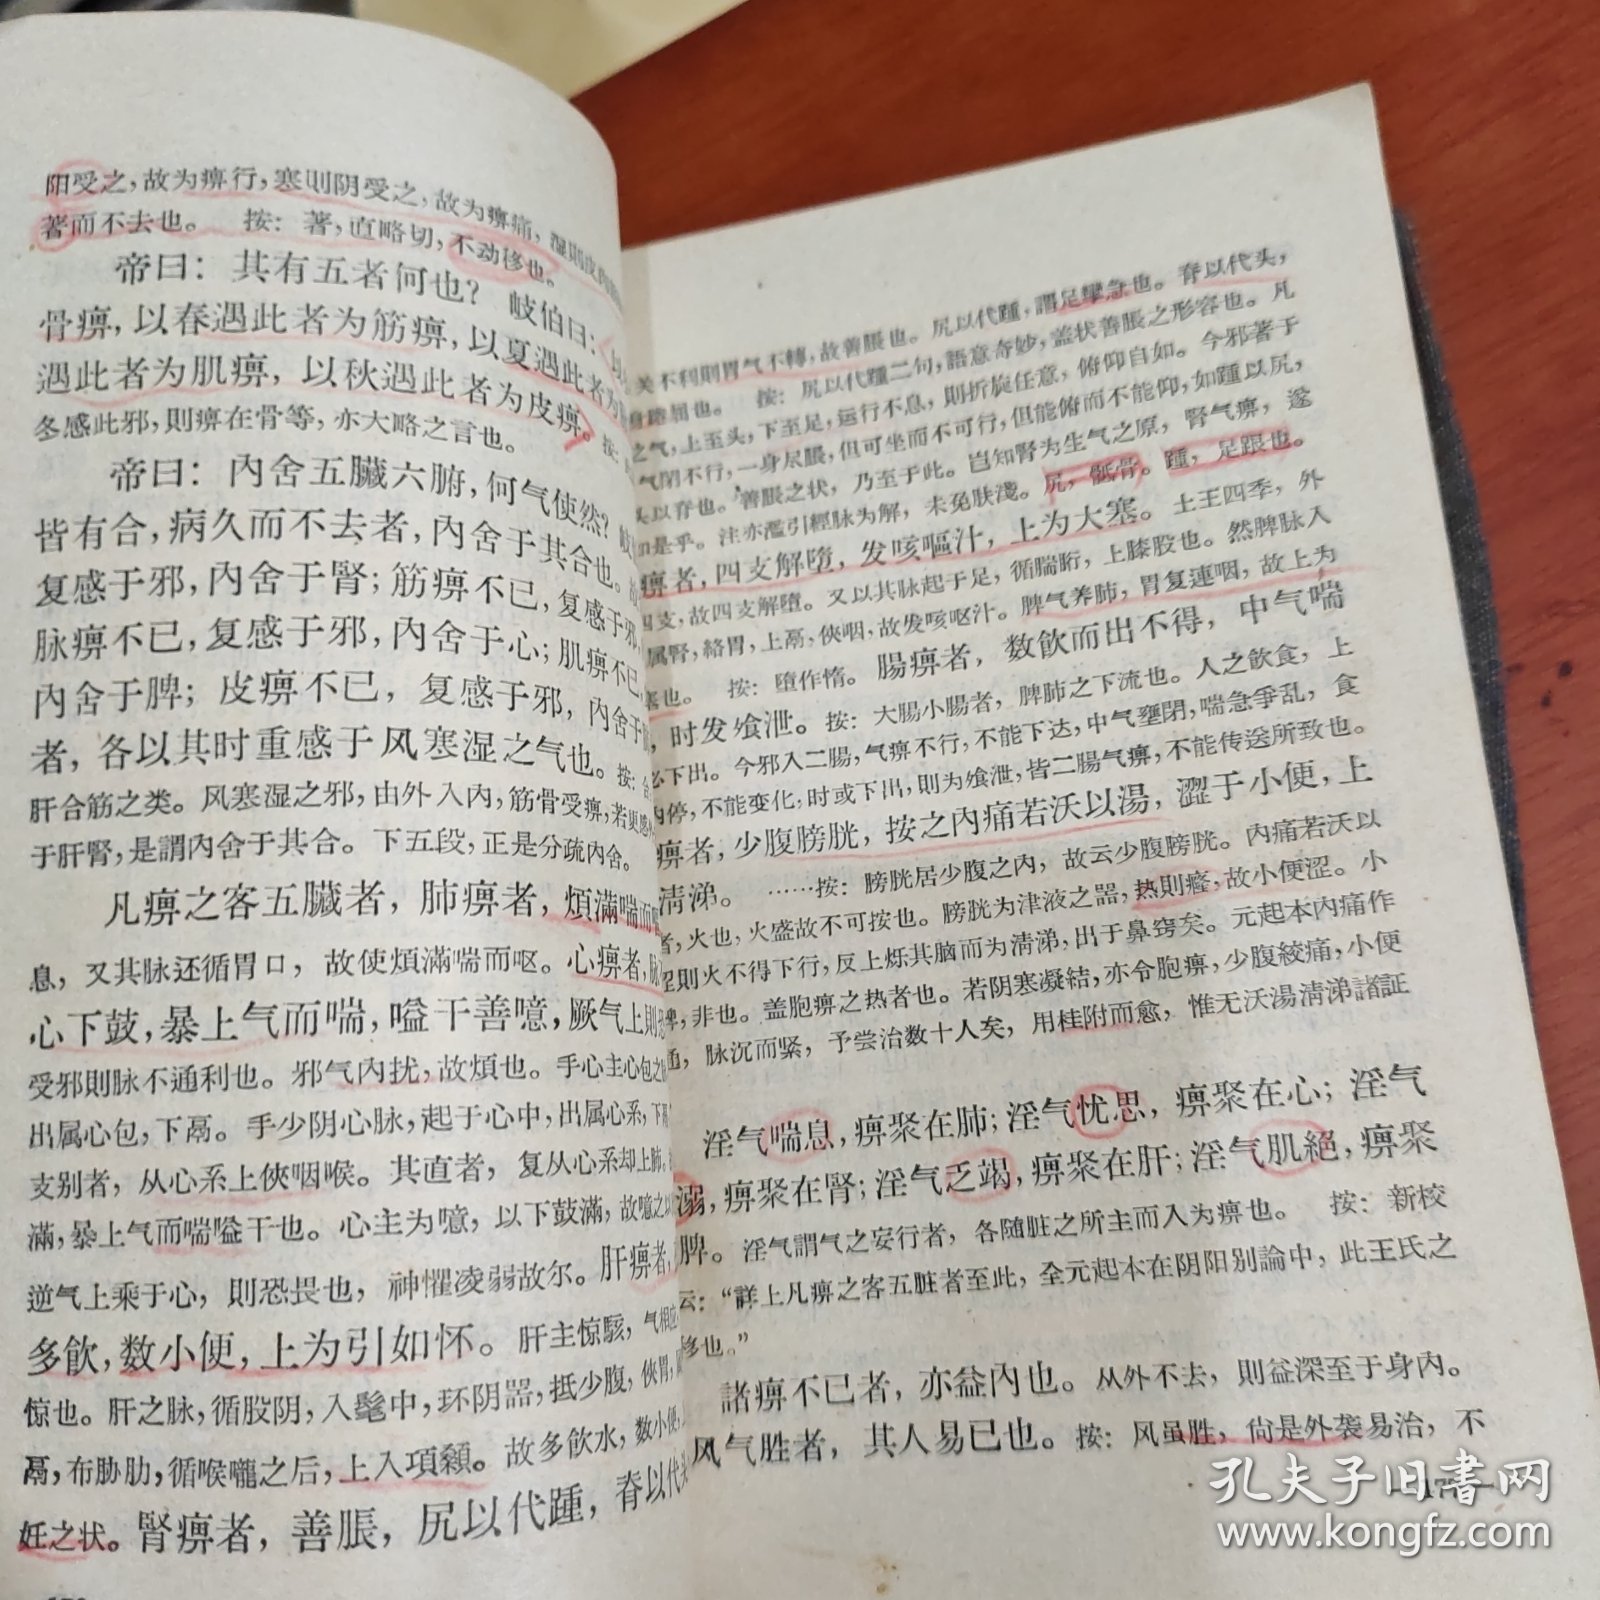 阳受之，故为痹行，寒則阴受之，故为痹痛，湿則皮肉
著而不去也。　按：著，直略切，不动移也。
帝曰：其有五者何也？　岐伯曰：以
骨痹，以春遇此者为筋痹，以夏遇此者为
遇此者为肌痹，以秋遇此者为皮痹。按：
冬感此邪，則痹在骨等，亦大略之言也。
帝曰：內舍五臟六腑，何气使然？岐
皆有合，病久而不去者，內舍于其合也。
复感于邪，內舍于腎；筋痹不已，复感于邪，
脉痹不已，复感于邪，內舍于心；肌痹不已，
內舍于脾；皮痹不已，复感于邪，內舍于
者，各以其时重感于风寒湿之气也。按：合
肝合筋之类。风寒湿之邪，由外入內，筋骨受痹，若更感
于肝腎，是謂內舍于其合。下五段，正是分疏內舍。
凡痹之客五臟者，肺痹者，煩滿喘而
息，又其脉还循胃口，故使煩滿喘而呕。心痹者，脉
心下鼓，暴上气而喘，嗌干善噫，厥气上則恐
受邪則脉不通利也。邪气內扰，故煩也。手心主心包之
出属心包，下鬲。手少阴心脉，起于心中，出属心系，下
支别者，从心系上俠咽喉。其直者，复从心系却上肺。
滿，暴上气而喘嗌干也。心主为噫，以下鼓滿，故噫之以
逆气上乘于心，則恐畏也，神懼凌弱故尔。肝痹者，
多飮，数小便，上为引如怀。肝主惊駭，气相应
惊也。肝之脉，循股阴，入髦中，环阴器，抵少腹，俠胃，
鬲，布胁肋，循喉嚨之后，上入頏顙。故多飮水，数小便，
妊之状。腎痹者，善脹，尻以代踵，脊以代头
关不利則胃气不轉，故善脹也。尻以代踵，謂足攣急也。脊以代头，
身踡屈也。　按：尻以代踵二句，語意奇妙，盖状善脹之形容也。凡
之气，上至头，下至足，运行不息，則折旋任意，俯仰自如。今邪著于
气閉不行，一身尽脹，但可坐而不可行，但能俯而不能仰，如踵以尻，
头以脊也。善脹之状，乃至于此。岂知腎为生气之原，腎气痹，遂
如是乎。注亦濫引經脉为解，未免肤淺。尻，骶骨。踵，足跟也。
痹者，四支解墮，发咳嘔汁，上为大塞。土王四季，外
四支，故四支解墮。又以其脉起于足，循腨䯒，上膝股也。然脾脉入
属腎，絡胃，上鬲，俠咽，故发咳呕汁。脾气养肺，胃复連咽，故上为
塞也。　按：墮作惰。腸痹者，数飮而出不得，中气喘
，时发飧泄。按：大腸小腸者，脾肺之下流也。人之飮食，上
必下出。今邪入二腸，气痹不行，不能下达，中气壅閉，喘急爭乱，食
內停，不能变化，时或下出，則为飧泄，皆二腸气痹，不能传送所致也。
痹者，少腹膀胱，按之內痛若沃以湯，澀于小便，上
清涕。　……按：膀胱居少腹之內，故云少腹膀胱。內痛若沃以
者，火也，火盛故不可按也。膀胱为津液之器，热則癃，故小便涩。小
涩則火不得下行，反上烁其脑而为清涕，出于鼻窍矣。元起本內痛作
髀，非也。盖胞痹之热者也。若阴寒凝結，亦令胞痹，少腹絞痛，小便
，脉沉而紧，予尝治数十人矣，用桂附而愈，惟无沃湯清涕諸証
淫气喘息，痹聚在肺；淫气忧思，痹聚在心；淫气
溺，痹聚在腎；淫气乏竭，痹聚在肝；淫气肌絕，痹聚
脾。淫气謂气之妄行者，各随脏之所主而入为痹也。　按：新校
云：“詳上凡痹之客五脏者至此，全元起本在阴阳别論中，此王氏之
移也。”
諸痹不已者，亦益內也。从外不去，則益深至于身內。
风气胜者，其人易已也。按：风虽胜，尙是外袭易治，不
孔夫子旧书网
www.kongfz.com